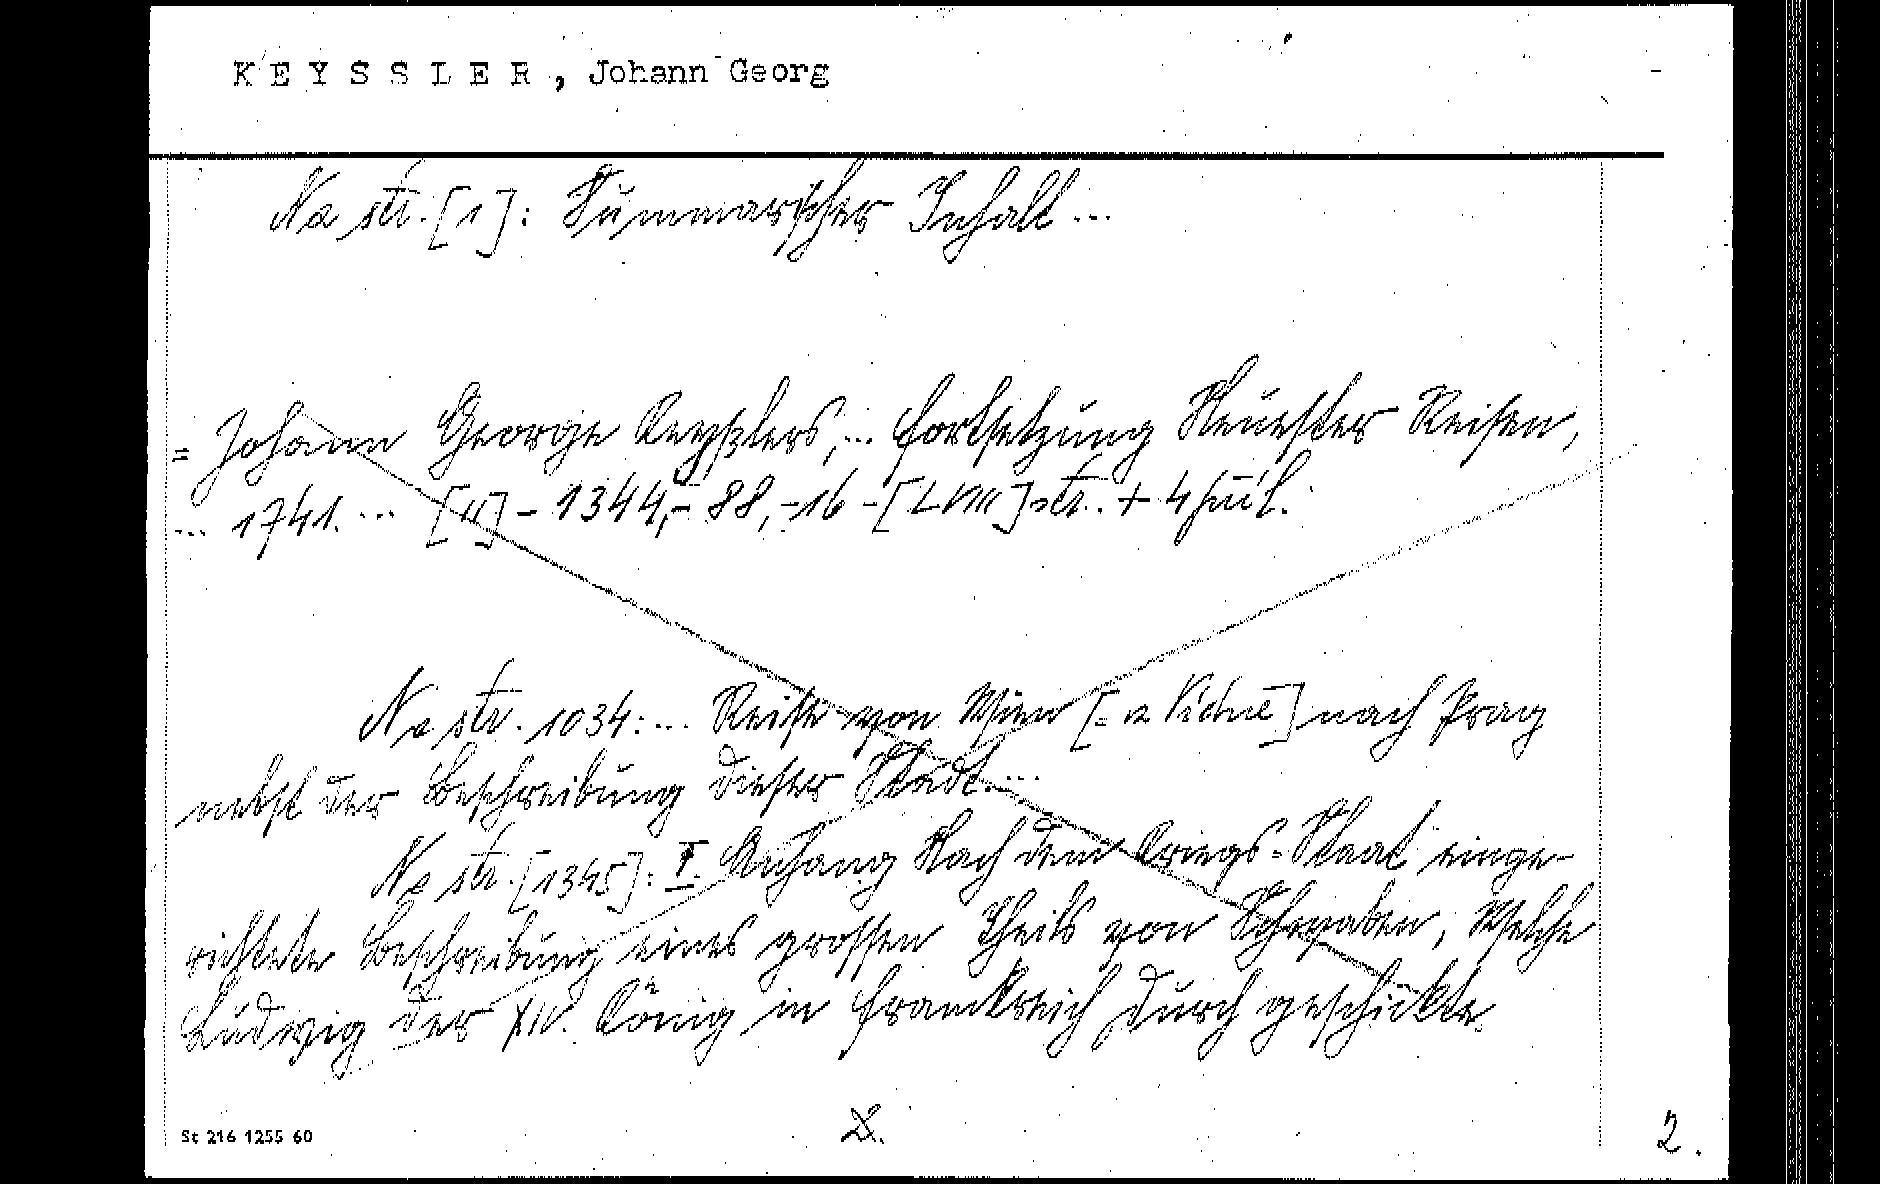 KEYSSLER, Johann Georg
Na str. [1]: Summarischer Inhalt...
= Johann George Keyßlers,... Fortsetzung Neuester Reisen,
... 1741. ... - 1344, - 88, -16 - str. + 4 příl.
Na str. 1034: ... Reise von Wien [= z Vídně] nach Prag
nebst der Beschreibung dieser Stadt...
Na str. [1345]: I. Anhang Nach dem Kriegs=Staat einge-
richtete Beschreibung eines grossen Theils von Schwaben, Welche
Ludwig der XIV. König in Franckreich durch geschickte
St 216 1255 60
2.